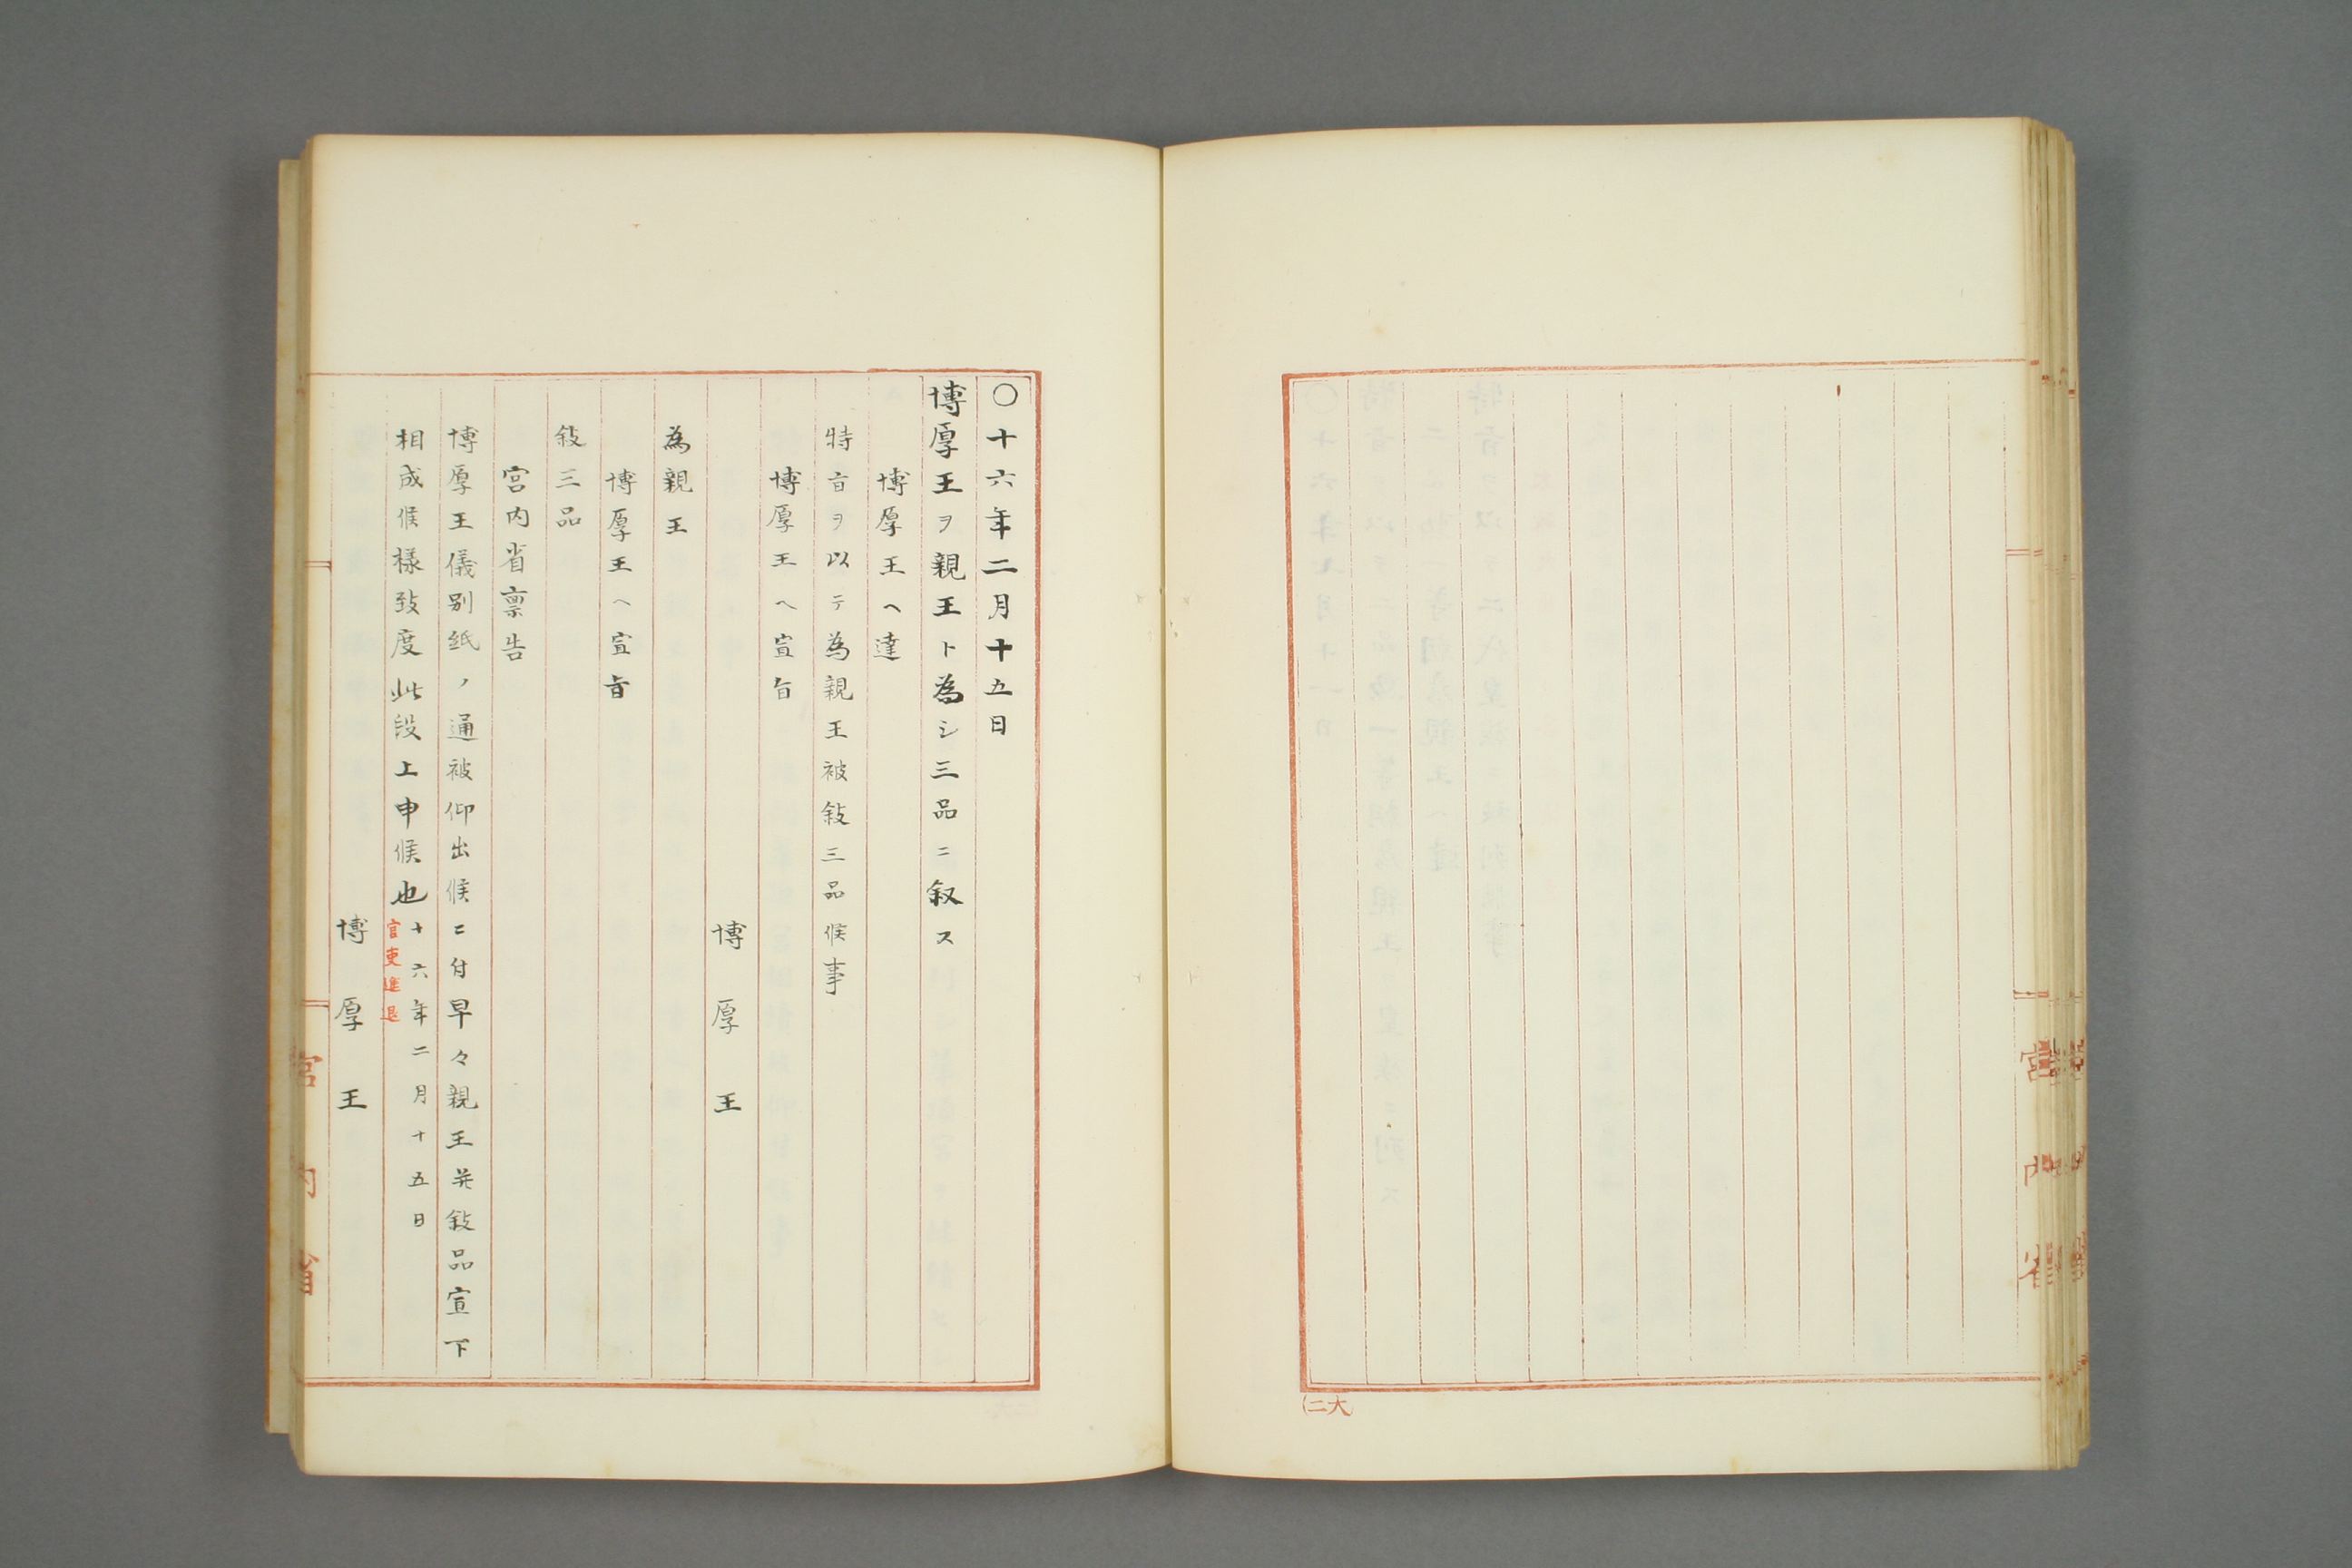 宮内省
(二大
〇十六年二月十五日
博厚王ヲ親王ト為シ三品ニ叙ス
博厚王ヘ達
特旨ヲ以テ為親王被敍三品候事
博厚王ヘ宣旨
博厚王
為親王
博厚王ヘ宣旨
敍三品
宮内省稟告
博厚王儀別紙ノ通被仰出候ニ付早々親王并敍品宣下
相成候様致度此段上申候也 十六年二月十五日
官吏進退
博厚王
宮内省